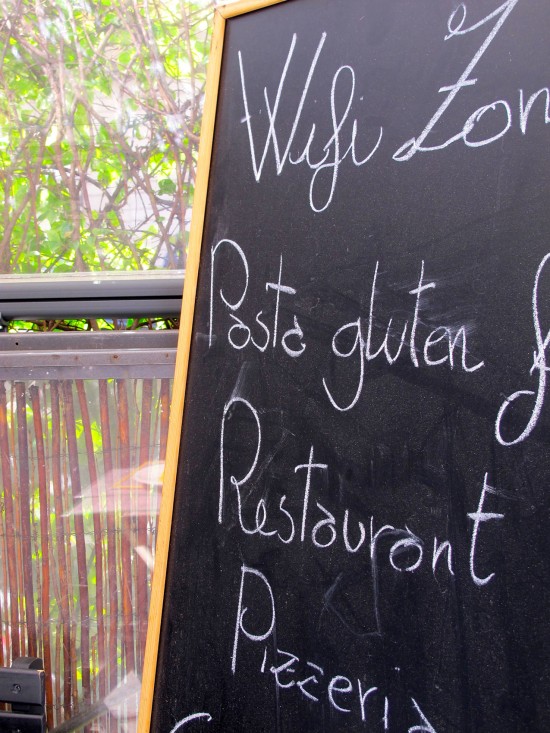 Wifi Zon
Pasta gluten f
Restaurant
Pizzeria